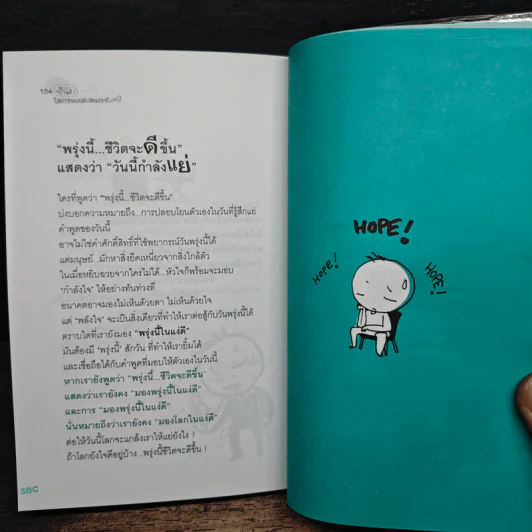 154
"พรุ่งนี้...ชีวิตจะดีขึ้น"
แสดงว่า "วันนี้กำลังแย่"
ใครที่พูดว่า "พรุ่งนี้...ชีวิตจะดีขึ้น"
บ่งบอกความหมายถึง...การปลอบโยนตัวเองในวันที่รู้สึกแย่
คำพูดของวันนี้
อาจไม่ใช่คำศักดิ์สิทธิ์ที่ใช้พยากรณ์วันพรุ่งนี้ได้
แต่มนุษย์...มักหาสิ่งยึดเหนี่ยวจากสิ่งใกล้ตัว
ในเมื่อหยิบฉวยจากใครไม่ได้...หัวใจก็พร้อมจะมอบ
"กำลังใจ" ให้อย่างทันท่วงที
อนาคตอาจมองไม่เห็นด้วยตา ไม่เห็นด้วยใจ
แต่ "พลังใจ" จะเป็นสิ่งเดียวที่ทำให้เราต่อสู้กับวันพรุ่งนี้ได้
ตราบใดที่เรายังมอง "พรุ่งนี้ในแง่ดี"
มันต้องมี "พรุ่งนี้" สักวัน ที่ทำให้เรายิ้มได้
และเชื่อถือได้กับคำพูดที่มอบให้ตัวเองในวันนี้
หากเรายังพูดว่า "พรุ่งนี้...ชีวิตจะดีขึ้น"
แสดงว่าเรายังคง "มองพรุ่งนี้ในแง่ดี"
และการ "มองพรุ่งนี้ในแง่ดี"
นั่นหมายถึงว่าเรายังคง "มองโลกในแง่ดี"
ต่อให้วันนี้โลกจะแกล้งเราให้แย่ยังไง ?
ถ้าโลกยังใจดีอยู่บ้าง...พรุ่งนี้ชีวิตจะดีขึ้น !
SBC
HOPE!
HOPE!
HOPE!